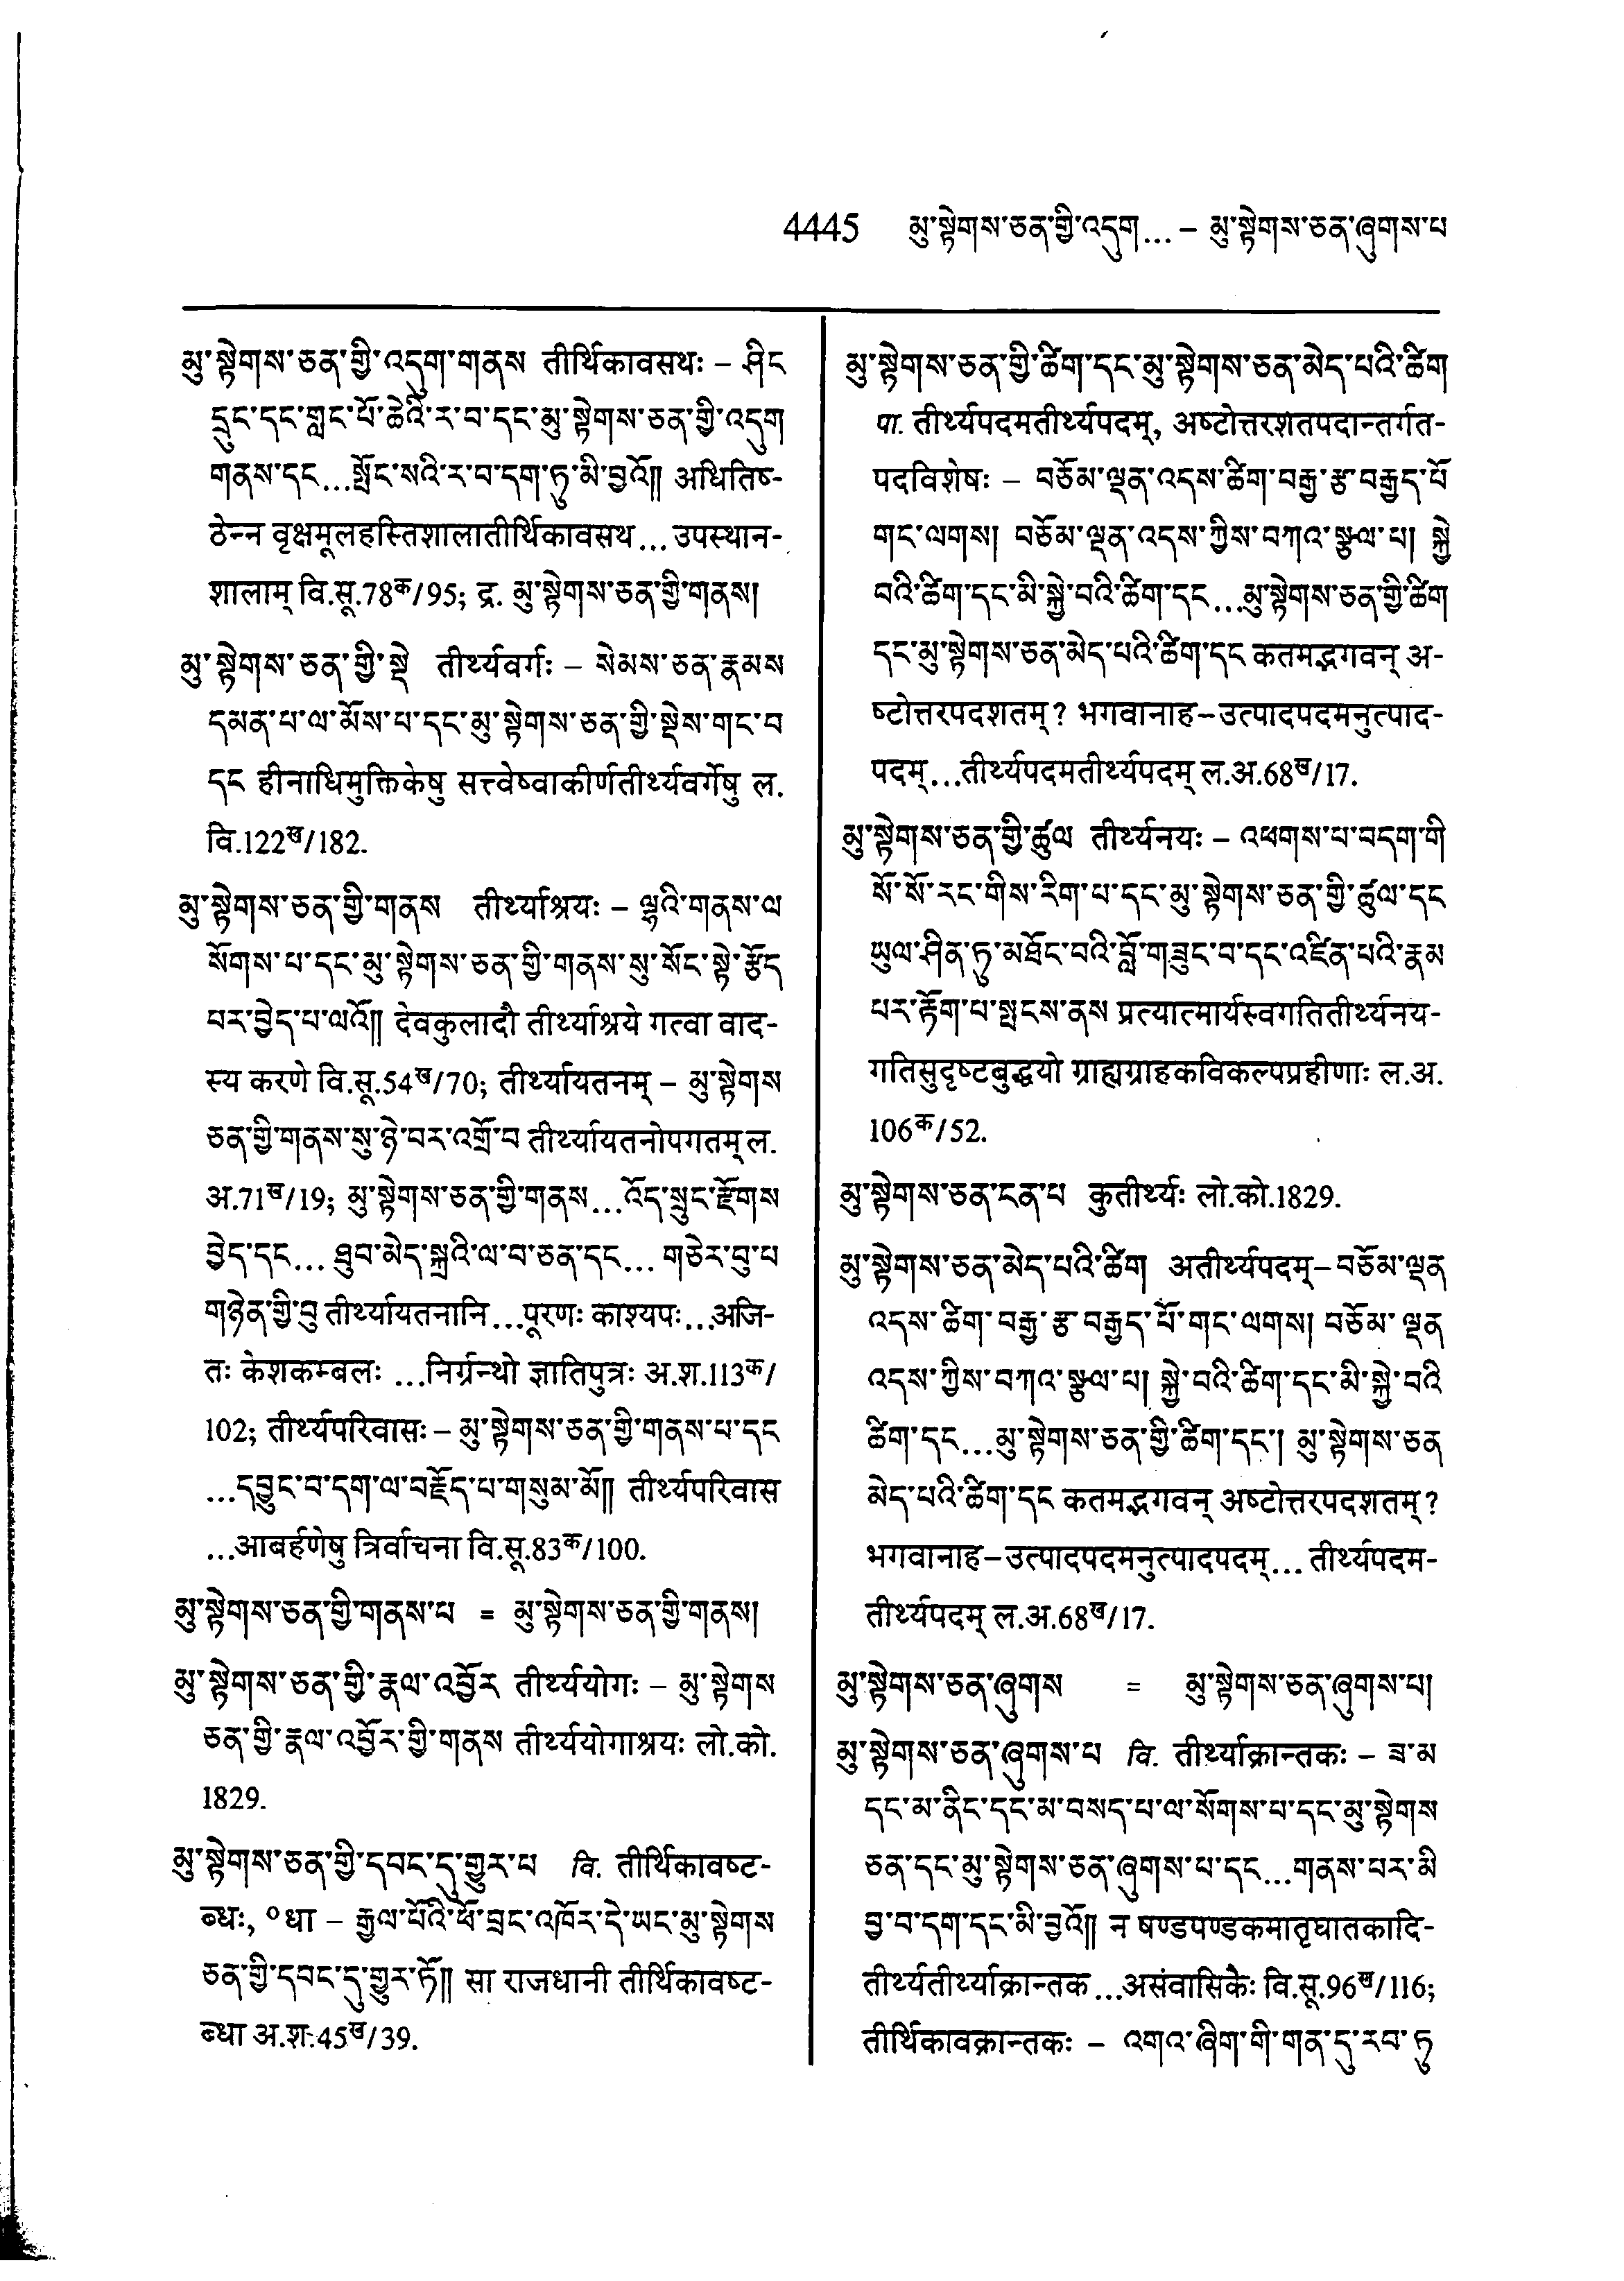 4445 མུ་སྟེགས་ཅན་གྱི་འདུག... – མུ་སྟེགས་ཅན་ཞུགས་པ
མུ་སྟེགས་ཅན་གྱི་འདུག་གནས तीर्थिकावसथः – ཤིང
དྲུང་དང་གླང་པོ་ཆེའི་ར་བ་དང་མུ་སྟེགས་ཅན་གྱི་འདུག
གནས་དང...སྤོང་སའི་ར་བ་དག་ཏུ་མི་བྱའོ༎ अधितिष्-
ठेन्न वृक्षमूलहस्तिशालातीर्थिकावसथ... उपस्थान-
शालाम् वि.सू.78क/95; द्र. མུ་སྟེགས་ཅན་གྱི་གནས།
མུ་སྟེགས་ཅན་གྱི་སྡེ तीर्थ्यवर्गः – སེམས་ཅན་རྣམས
དམན་པ་ལ་མོས་པ་དང་མུ་སྟེགས་ཅན་གྱི་སྡེས་གང་བ
དང हीनाधिमुक्तिकेषु सत्त्वेष्वाकीर्णतीर्थ्यवर्गेषु ल.
वि.122ख/182.
མུ་སྟེགས་ཅན་གྱི་གནས तीर्थ्याश्रयः – ལྷའི་གནས་ལ
སོགས་པ་དང་མུ་སྟེགས་ཅན་གྱི་གནས་སུ་སོང་སྟེ་རྩོད
པར་བྱེད་པ་ལའོ༎ देवकुलादौ तीर्थ्याश्रये गत्वा वाद-
स्य करणे वि.सू.54ख/70; तीर्थ्यायतनम् – མུ་སྟེགས
ཅན་གྱི་གནས་སུ་ཉེ་བར་འགྲོ་བ तीर्थ्यायतनोपगतम् ल.
अ.71ख/19; མུ་སྟེགས་ཅན་གྱི་གནས...འོད་སྲུང་རྫོགས
བྱེད་དང... ཐུབ་མེད་སྐྲའི་ལ་བ་ཅན་དང... གཅེར་བུ་པ
གཉེན་གྱི་བུ तीर्थ्यायतनानि...पूरणः काश्यपः...अजि-
तः केशकम्बलः ...निर्ग्रन्थो ज्ञातिपुत्रः अ.श.113क/
102; तीर्थ्यपरिवासः – མུ་སྟེགས་ཅན་གྱི་གནས་པ་དང
...དབྱུང་བ་དག་ལ་བརྗོད་པ་གསུམ་མོ༎ तीर्थ्यपरिवास
...आबर्हणेषु त्रिर्वाचना वि.सू.83क/100.
མུ་སྟེགས་ཅན་གྱི་གནས་པ = མུ་སྟེགས་ཅན་གྱི་གནས།
མུ་སྟེགས་ཅན་གྱི་རྣལ་འབྱོར तीर्थ्ययोगः – མུ་སྟེགས
ཅན་གྱི་རྣལ་འབྱོར་གྱི་གནས तीर्थ्ययोगाश्रयः लो.को.
1829.
མུ་སྟེགས་ཅན་གྱི་དབང་དུ་གྱུར་པ वि. तीर्थिकावष्ट-
ब्धः, ०धा – རྒྱལ་པོའི་ཕོ་བྲང་འཁོར་དེ་ཡང་མུ་སྟེགས
ཅན་གྱི་དབང་དུ་གྱུར་ཏོ༎ सा राजधानी तीर्थिकावष्ट-
ब्धा अ.श.45ख/39.
མུ་སྟེགས་ཅན་གྱི་ཚིག་དང་མུ་སྟེགས་ཅན་མེད་པའི་ཚིག
पा. तीर्थ्यपदमतीर्थ्यपदम्, अष्टोत्तरशतपदान्तर्गत-
पदविशेषः – བཅོམ་ལྡན་འདས་ཚིག་བརྒྱ་རྩ་བརྒྱད་པོ
གང་ལགས། བཅོམ་ལྡན་འདས་ཀྱིས་བཀའ་སྩལ་པ། སྐྱེ
བའི་ཚིག་དང་མི་སྐྱེ་བའི་ཚིག་དང...མུ་སྟེགས་ཅན་གྱི་ཚིག
དང་མུ་སྟེགས་ཅན་མེད་པའི་ཚིག་དང कतमद्भगवन् अ-
ष्टोत्तरपदशतम्? भगवानाह–उत्पादपदमनुत्पाद-
पदम्...तीर्थ्यपदमतीर्थ्यपदम् ल.अ.68ख/17.
མུ་སྟེགས་ཅན་གྱི་ཚུལ तीर्थ्यनयः – འཕགས་པ་བདག་གི
སོ་སོ་རང་གིས་རིག་པ་དང་མུ་སྟེགས་ཅན་གྱི་ཚུལ་དང
ཡུལ་ཤིན་ཏུ་མཐོང་བའི་བློ་གཟུང་བ་དང་འཛིན་པའི་རྣམ
པར་རྟོག་པ་སྤངས་ནས प्रत्यात्मार्यस्वगतितीर्थ्यनय-
गतिसुदृष्टबुद्धयो ग्राह्यग्राहकविकल्पप्रहीणाः ल.अ.
106क/52.
མུ་སྟེགས་ཅན་ངན་པ कुतीर्थ्यः लो.को.1829.
མུ་སྟེགས་ཅན་མེད་པའི་ཚིག अतीर्थ्यपदम्–བཅོམ་ལྡན
འདས་ཚིག་བརྒྱ་རྩ་བརྒྱད་པོ་གང་ལགས། བཅོམ་ལྡན
འདས་ཀྱིས་བཀའ་སྩལ་པ། སྐྱེ་བའི་ཚིག་དང་མི་སྐྱེ་བའི
ཚིག་དང...མུ་སྟེགས་ཅན་གྱི་ཚིག་དང་། མུ་སྟེགས་ཅན
མེད་པའི་ཚིག་དང कतमद्भगवन् अष्टोत्तरपदशतम्?
भगवानाह–उत्पादपदमनुत्पादपदम्... तीर्थ्यपदम-
तीर्थ्यपदम् ल.अ.68ख/17.
མུ་སྟེགས་ཅན་ཞུགས = མུ་སྟེགས་ཅན་ཞུགས་པ།
མུ་སྟེགས་ཅན་ཞུགས་པ वि. तीर्थ्याक्रान्तकः – ཟ་མ
དང་མ་ནིང་དང་མ་བསད་པ་ལ་སོགས་པ་དང་མུ་སྟེགས
ཅན་དང་མུ་སྟེགས་ཅན་ཞུགས་པ་དང...གནས་པར་མི
བྱ་བ་དག་དང་མི་བྱའོ༎ न षण्डपण्डकमातृघातकादि-
तीर्थ्यतीर्थ्याक्रान्तक...असंवासिकैः वि.सू.96ख/116;
तीर्थिकावक्रान्तकः – འགའ་ཞིག་གི་གན་དུ་རབ་ཏུ